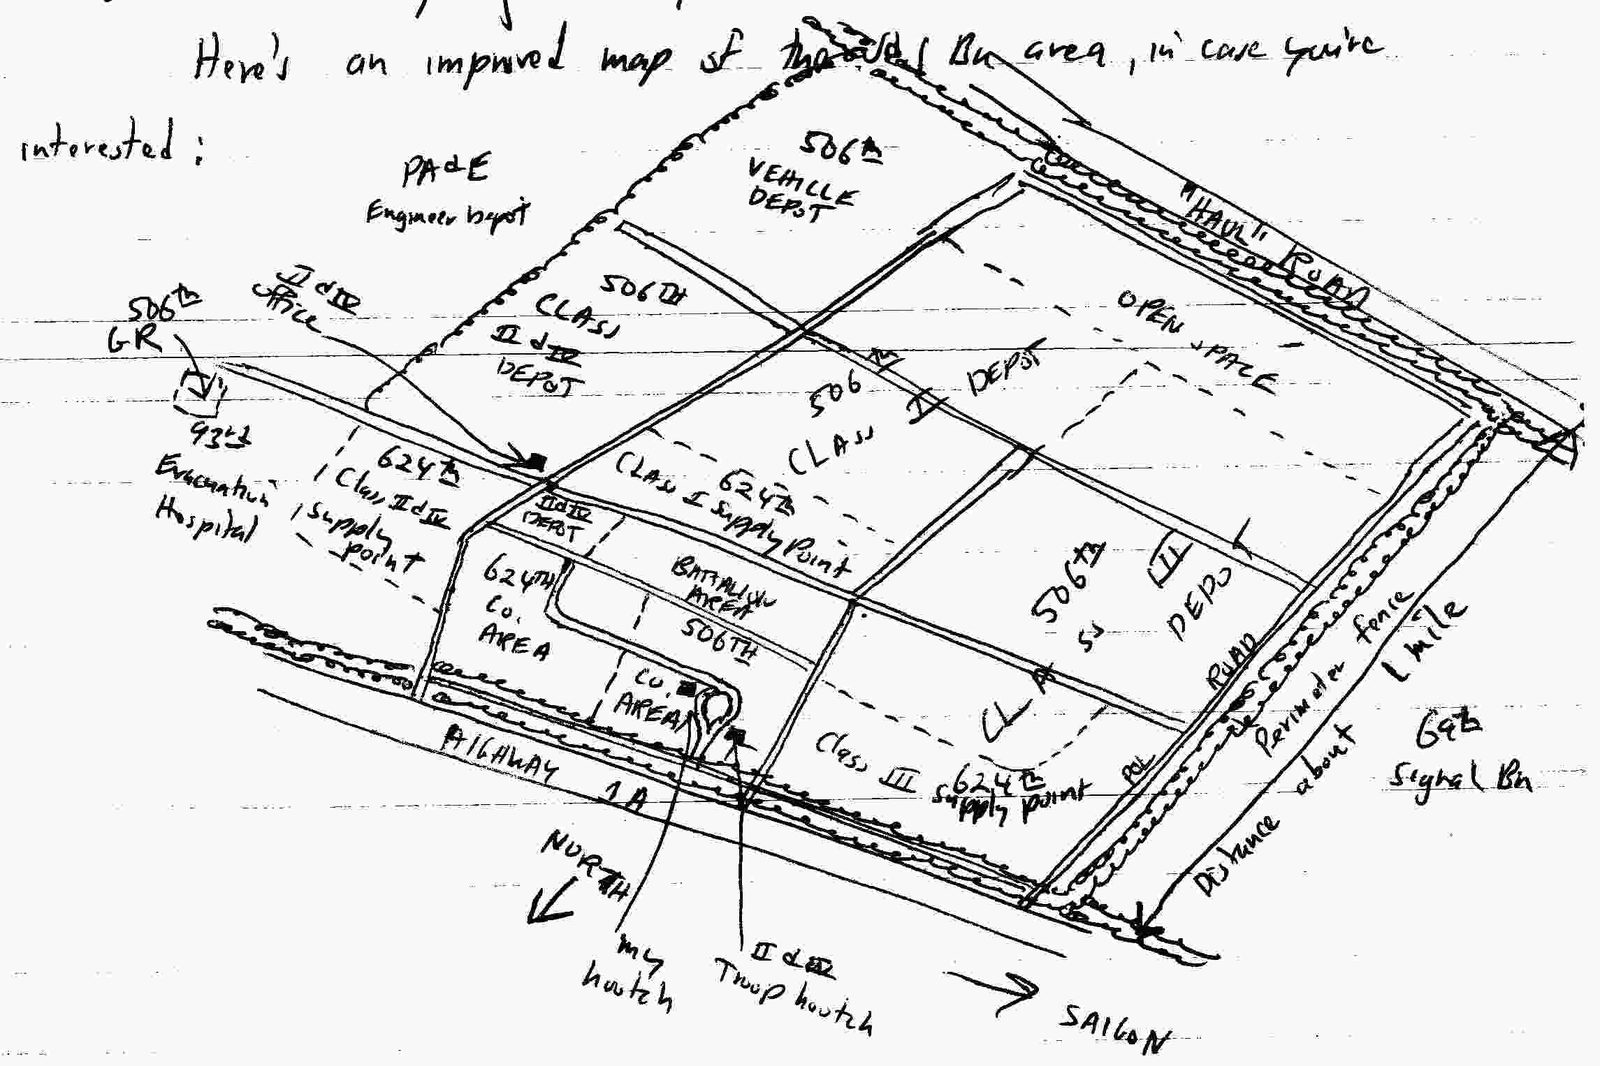 Here's an improved map of the old Bn area, in case you're
interested:
PA&E
Engineer Depot
506th
VEHICLE
DEPOT
"HAUL" ROAD
II & IV
Office
506th
GR
506TH
CLASS
II & IV
DEPOT
OPEN SPACE
93rd
Evacuation
Hospital
624th
Class II & IV
supply
point
506th
CLASS I DEPOT
624th
CLASS I Supply Point
II & IV
DEPOT
BATTALION
AREA
624TH
Co.
AREA
506TH
CO.
AREA
506th
CLASS III
DEPOT
Class III
624th
supply point
POL ROAD
Perimeter fence
Distance about 1 mile
69th
Signal Bn
HIGHWAY 1A
NORTH
my
hootch
II & IV
Troop hootch
SAIGON